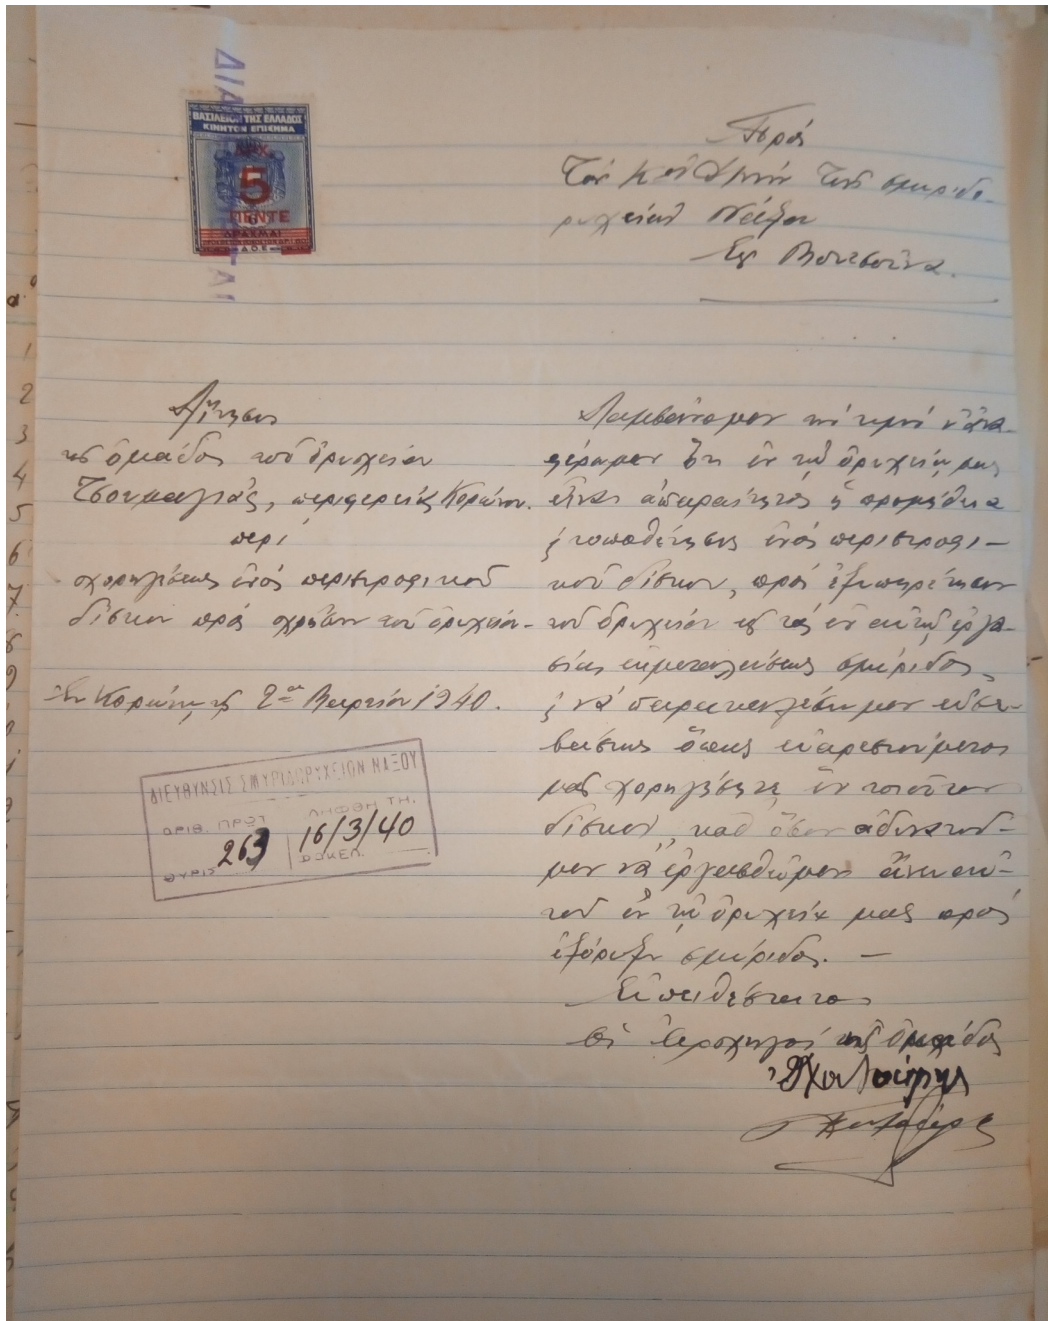 ΒΑΣΙΛΕΙΟΝ ΤΗΣ ΕΛΛΑΔΟΣ
ΚΙΝΗΤΟΝ ΕΠΙΣΗΜΑ
ΔΡΧ.
5
ΠΕΝΤΕ
ΔΡΑΧΜΑΙ
Πρός
Τόν κον Δ/τήν τῶν σμυριδο-
ρυχείων Νάξου
Εἰς
Αἴτησις
τῆς ὁμάδος τοῦ ὀρυχείου
Τσουμαγιάς, περιφερείας Κορώνου.
περί
χορηγήσεως ἑνός περιστροφικοῦ
δίσκου πρός χρῆσιν τοῦ ὀρυχείου.
Ἐν Κορώνῳ τῇ 2α Μαρτίου 1940.
ΔΙΕΥΘΥΝΣΙΣ ΣΜΥΡΙΔΩΡΥΧΕΙΩΝ ΝΑΞΟΥ
ΑΡΙΘ. ΠΡΩΤ 263
ΛΗΦΘΗ ΤΗ. 16/3/40
ΘΥΡΙΣ ΦΑΚΕΛ.
Λαμβάνομεν τήν τιμήν ν' ἀνα-
φέρωμεν ὅτι ἐν τῷ ὀρυχείῳ μας
εἶναι ἀπαραίτητος ἡ προμήθεια
ἑνός περιστροφι-
κοῦ δίσκου, πρός ἐξυπηρέτησιν
τοῦ ὀρυχείου εἰς τάς ἐν αὐτῷ ἐργα-
σίας ἐκμεταλλεύσεως σμύριδος,
νά παρακαλέσωμεν εὐσε-
βάστως ὅπως εὐαρεστούμενος
μᾶς χορηγήσητε ἕν τοιοῦτον
δίσκον, καθ' ὅσον ἀδυνατοῦ-
μεν νά ἐργασθῶμεν ἄνευ αὐ-
τοῦ ἐν τῷ ὀρυχείῳ μας πρός
ἐξόρυξιν σμύριδος. —
Εὐπειθέστατος
τῆς ὁμάδος